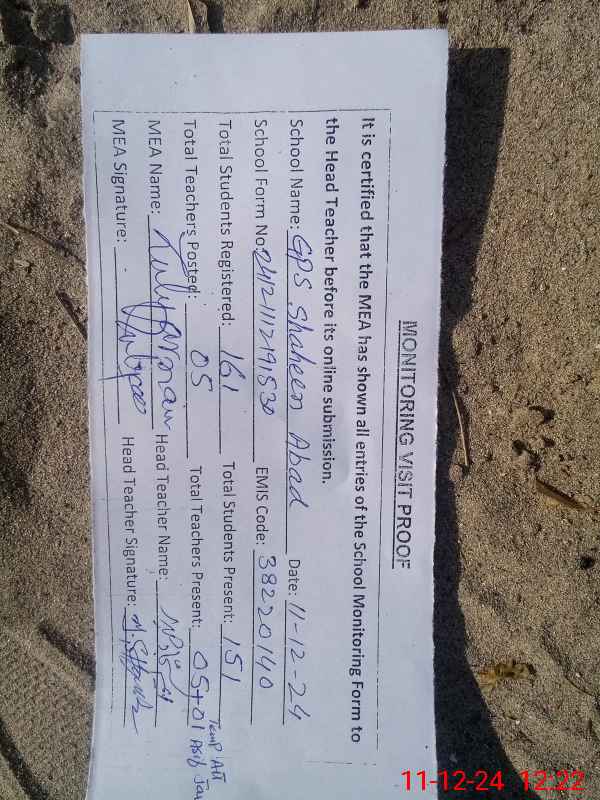 MONITORING VISIT PROOF
It is certified that the MEA has shown all entries of the School Monitoring Form to
the Head Teacher before its online submission.
School Name: GPS Shaheen Abad Date: 11-12-24
School Form No: 24121112191530 EMIS Code: 38220140
Total Students Registered: 161 Total Students Present: 151
Total Teachers Posted: 05 Total Teachers Present: 05+01 Temp Att Asif
MEA Name: Head Teacher Name:
MEA Signature: Head Teacher Signature:
11-12-24 12:22